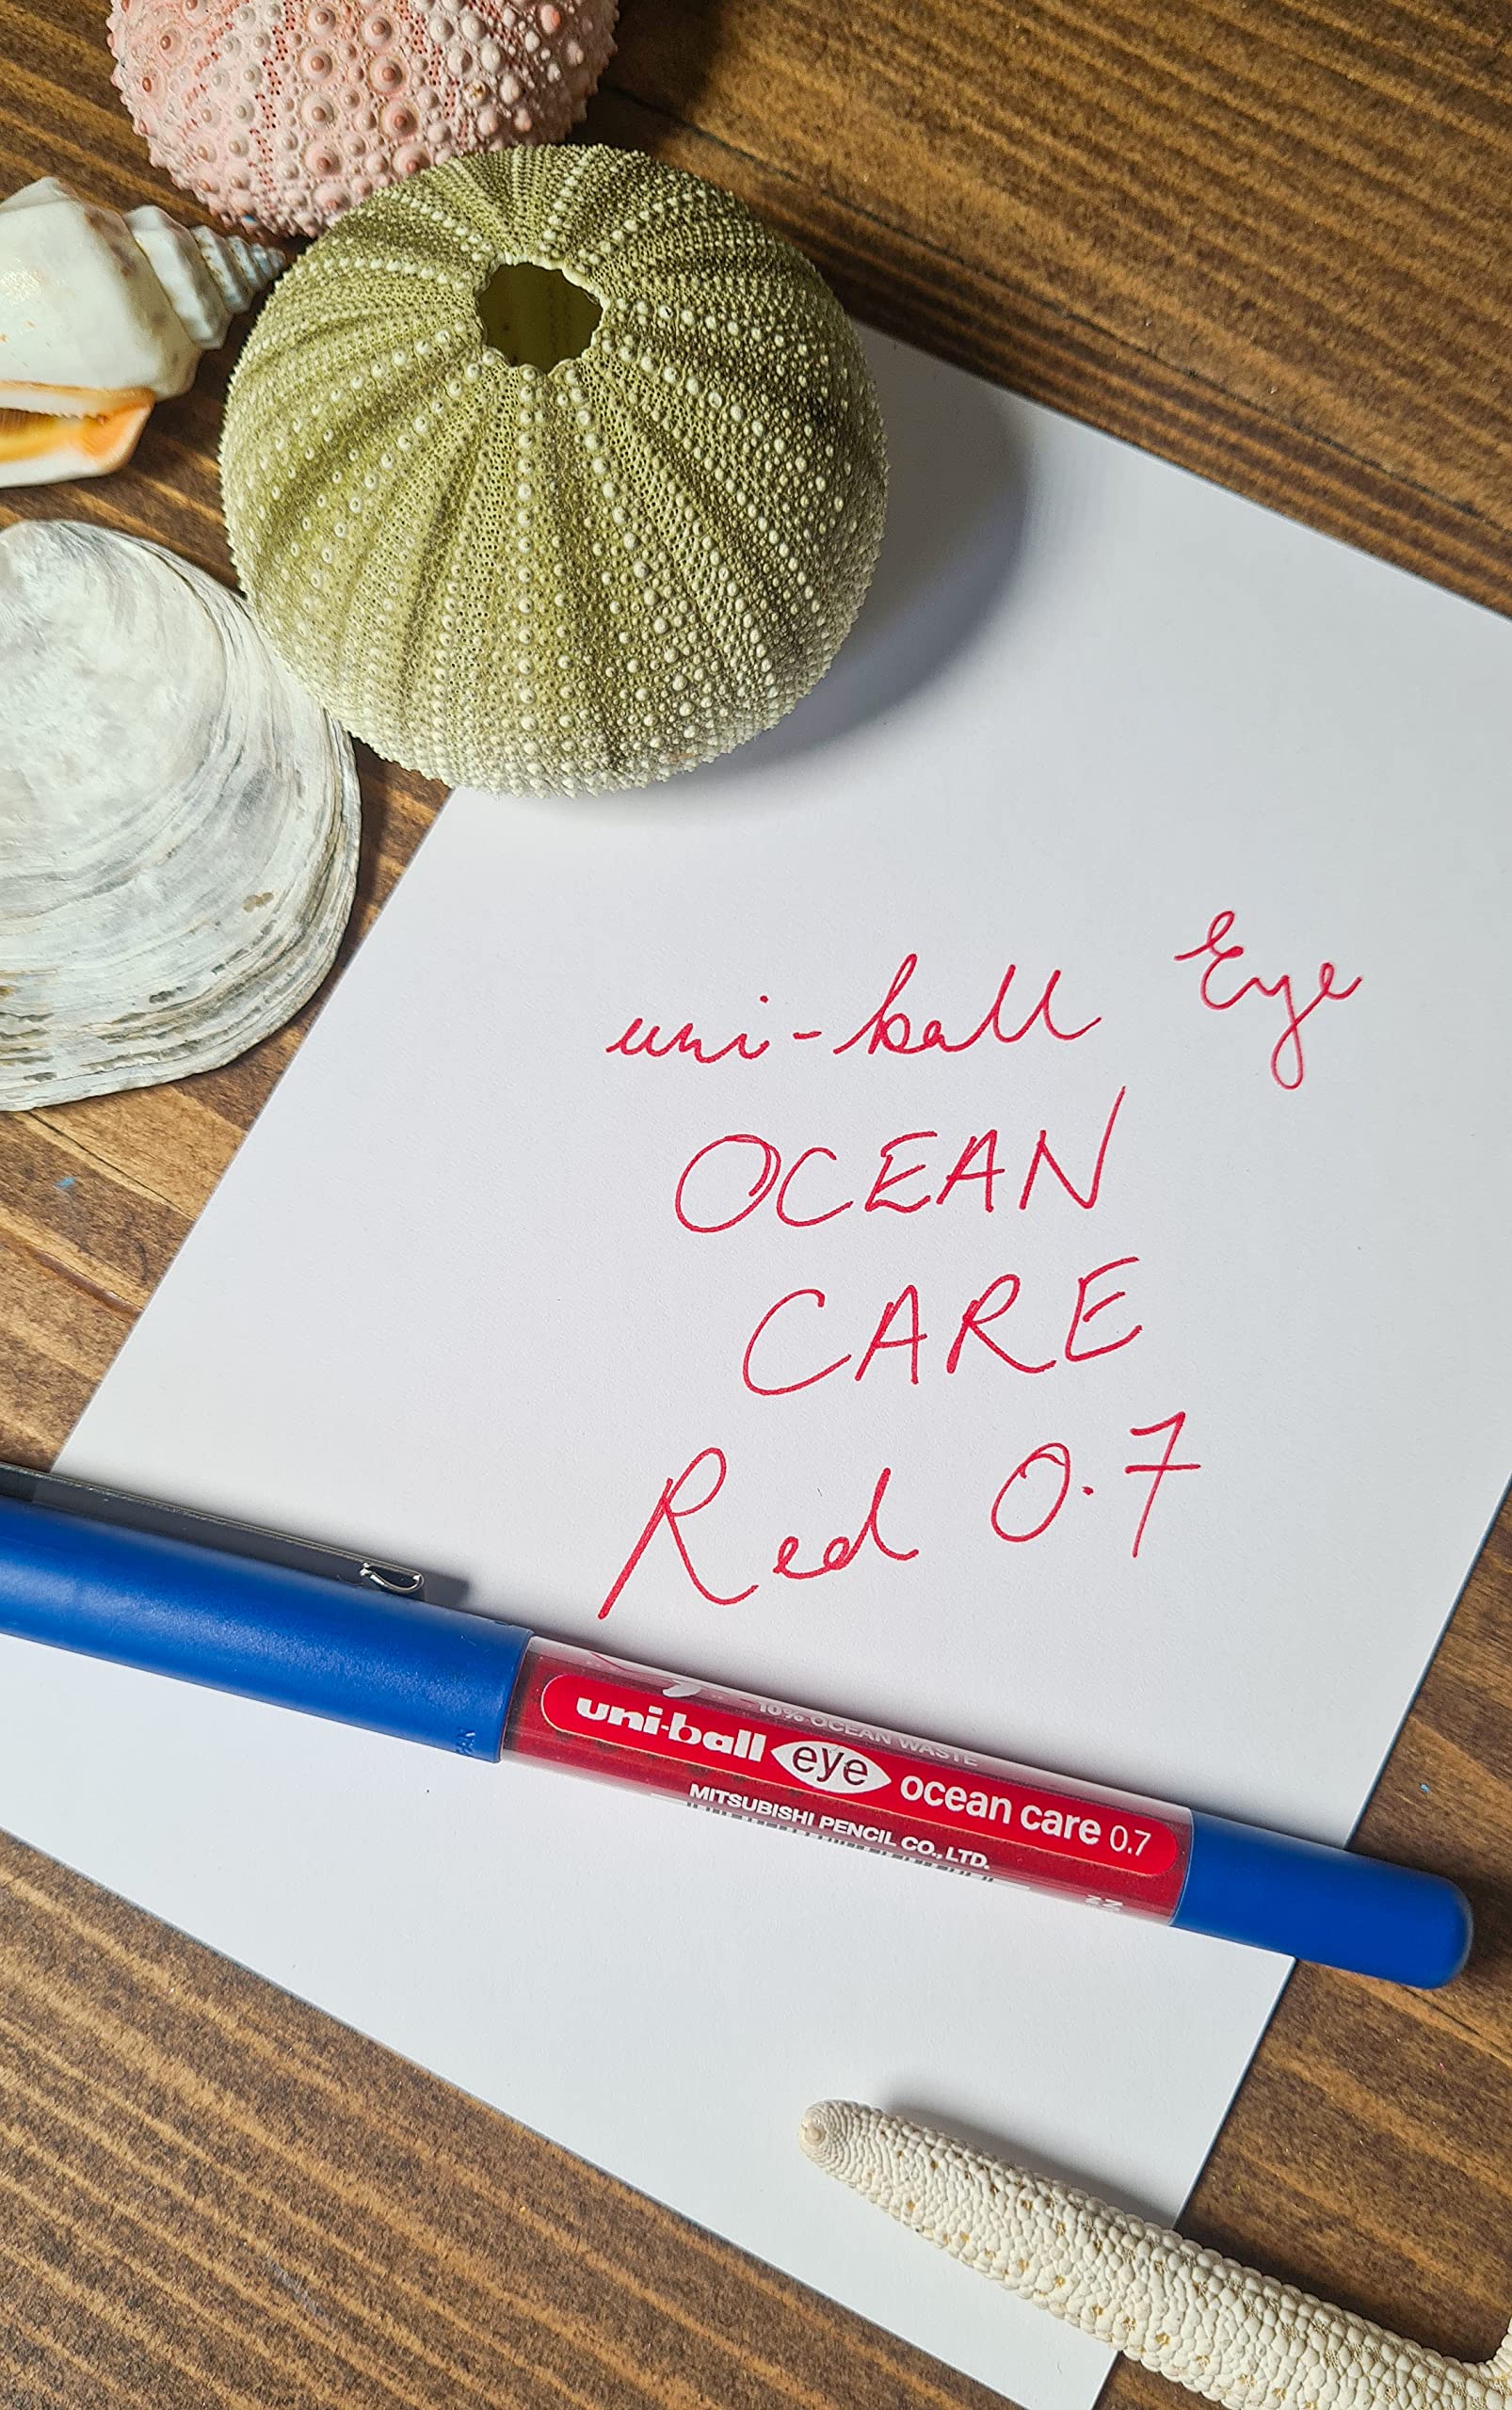 uni-ball Eye
OCEAN
CARE
Red 0.7
10% OCEAN WASTE
uni-ball eye ocean care 0.7
MITSUBISHI PENCIL CO., LTD.